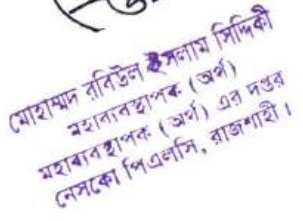 মোহাম্মদ রবিউল ইসলাম সিদ্দিকী
মহাব্যবস্থাপক (অর্থ)
মহাব্যবস্থাপক (অর্থ) এর দপ্তর
নেসকো পিএলসি, রাজশাহী।